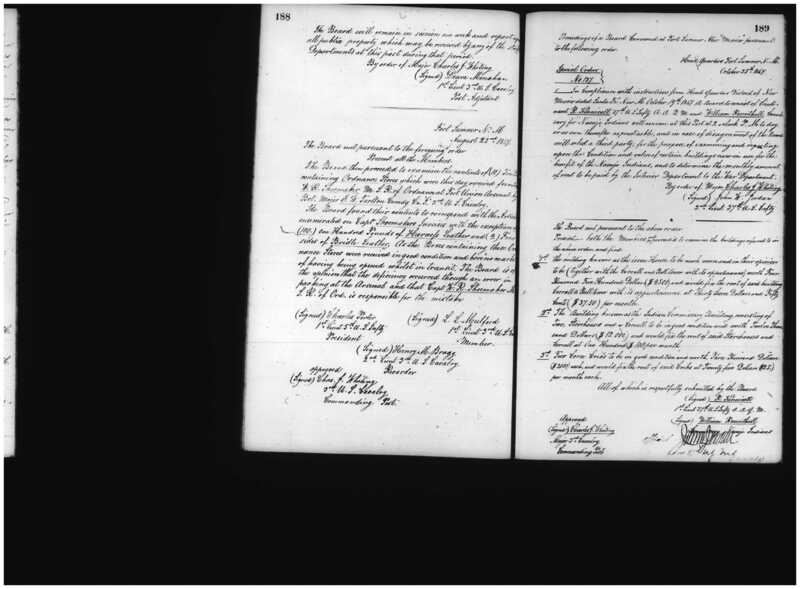 188
The Board will remain in session one week and report upon
all public property which may be received by any of the Staff
Departments at this post during that period.
By order of Major Charles J. Whiting
(Signed) Deane Monahan
1st Lieut 3rd U.S. Cavalry
Post Adjutant
Fort Sumner N. M.
August 22nd 1867.
The Board met pursuant to the foregoing order
Present all the Members.
The Board then proceeded to examine the contents of
containing Ordnance Stores which were this day received from
W. R. Shoemaker M. S. K. of Ordnance at Fort Union Arsenal by
Bvt. Major E. D. Tarlton Comdg Co. I. 3rd U.S. Cavalry.
The Board found their contents to correspond with the Articles
enumerated on Capt Shoemakers Invoices with the exception of
(100) on Hundred Pounds of Harness Leather and
sides of Bridle Leather. As the Boxes containing these Ord
nance Stores were received in good condition and bore no marks
of having being opened whilst in transit. The Board is of
the opinion that the deficiency occurred through an error in
packing at the Arsenal and that Capt W. R. Shoemaker M.
S. K. of Ord. is responsible for the mistake
(Signed) Charles Porter
1st Lieut 5th U.S. Infty
President
(Signed) L. L. Mulford
1st Lieut 3rd U.S. Cav
Member.
(Signed) Henry M. Bragg
2nd Lieut 3rd U.S. Cavalry
Recorder
approved
(Signed) Chas. J. Whiting
3rd U.S. Cavalry
Commanding Post.
189
Proceedings of a Board Convened at Fort Sumner New Mexico pursuant
to the following order.
Head Quarters Fort Sumner N. M.
October 25th 1867.
Special Orders
No. 127
In Compliance with instructions from Head Quarters District of New
Mexico dated Santa Fe New M. October 19th 1867 A board to consist of Lieut-
enant 37th U.S. Infty A. A. Q. M. and William Rosenthall
for Navajo Indians will convene at this Post at 2 o'clock P. M. to day
or as soon thereafter as practicable, and in case of disagreement of the Board
will select a third party, for the purpose of examining and reporting
upon the Condition and value of certain buildings now in use for the
benefit of the Navajo Indians, and to determine the monthly amount
of rent to be paid by the Interior Department to the War Department.
By order of Major Charles J. Whiting
(Signed) John W. Jordan
2nd Lieut 37th U.S. Infty
The Board met pursuant to the above order
Present both the Members. Proceeded to examine the buildings referred to in
the above order and find.
1st the building known as the Issue House to be much worn and in their opinion
to be (together with the Corrall and Bull house with its appurtenances) worth Four
Thousand Five Hundred Dollars ($4500) and would fix the rent of said building
Corrall & Bull house with its appurtenances at Thirty Seven Dollars and Fifty
Cents ($37.50) per month.
2nd The Building known as the Indian Commissary Building, consisting of
Two Storehouses and a Corrall to be in good condition and worth Twelve Thou-
sand Dollars ($12.000) and would fix the rent of said Storehouses and
Corrall at One Hundred ($100) per month.
3rd Two Corn Cribs to be in good condition and worth Two Thousand Dollars
($2000) each, and would fix the rent of each Cribs at Twenty five Dollars ($25)
per month each.
All of which is respectfully submitted by the Board
(Signed)
1st Lieut 37th U.S. Infty A. A. Q. M.
(Signed) William Rosenthall
Navajo Indians
Approved
(Signed) Charles J. Whiting
Major 3rd Cavalry
Commanding Post